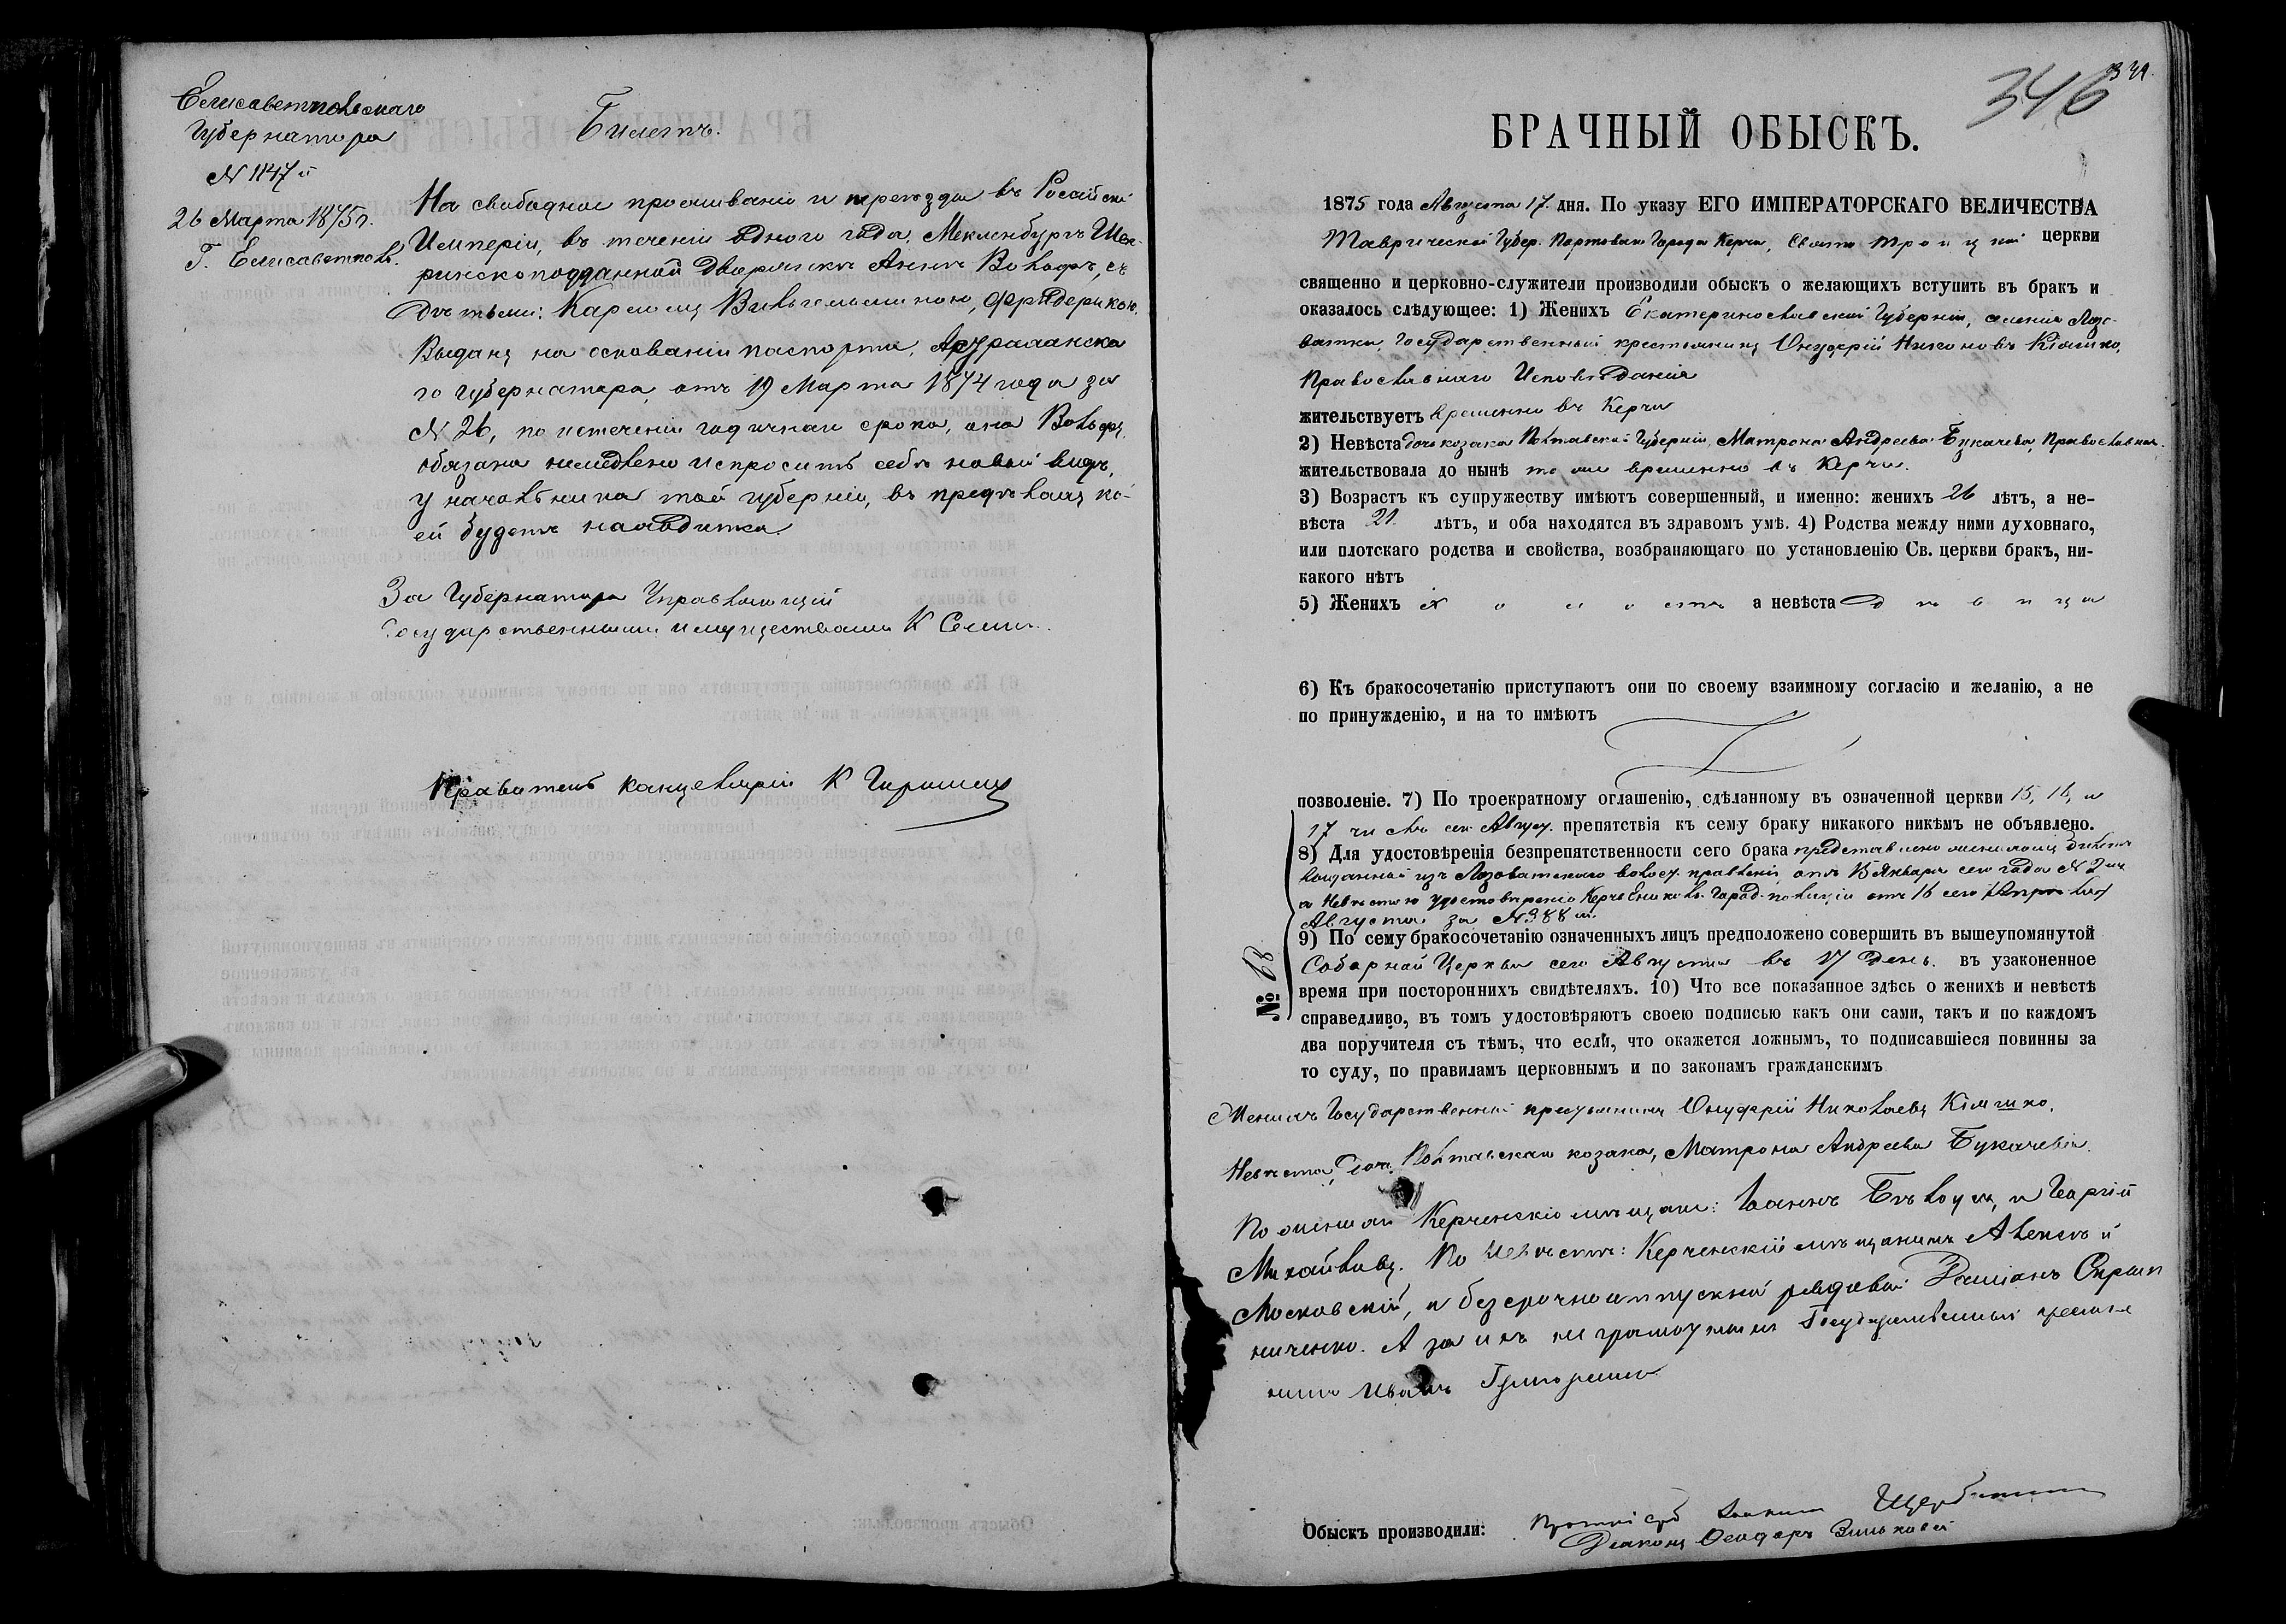 Елисаветпольскаго
Губернатора
N 1147й
26 Марта 1875 г.
Г. Елисаветполь.
Билетъ.
На свободное проживаніе и переездъ въ Росейской
Имперіи, въ теченіи одного года, Мекленбургъ Шве-
ринскоподданной дворянкѣ Аннѣ Вольфъ, съ
дѣтьми: Карломъ Вильгельминою, Фридерикою,
Выданъ на основаніи паспорта,
го Губернатора отъ 19 Марта 1874 года за
N 26, по истеченіи годичнаго срока, она Вольфъ,
обязана немедлено испросить себѣ новый видъ,
у начальника той губерніи, въ предѣлахъ ко-
ей будетъ находится.
За Губернатора Управляющій
Государственными имуществами К
Правитель канцеляріи К
346
БРАЧНЫЙ ОБЫСКЪ.
1875 года Августа 17. дня. По указу ЕГО ИМПЕРАТОРСКАГО ВЕЛИЧЕСТВА
Таврической Губер. Портоваго Города Керчи, Свято Троицкой церкви
священно и церковно-служители производили обыскъ о желающихъ вступить въ бракъ и
оказалось слѣдующее: 1) Женихъ Екатеринославской Губерніи, селенія Лозо-
ватки, Государственный крестьянинъ Онуфрій
Православнаго Исповѣданія
жительствуетъ временно въ Керчи
2) Невѣста дочь козака Полтавской Губерніи, Матрона Андреева Букачева, Православная.
жительствовала до нынѣ тоже временно въ Керчи.
3) Возрастъ къ супружеству имѣютъ совершенный, и именно: женихъ 26 лѣтъ, а не-
вѣста 21. лѣтъ, и оба находятся въ здравомъ умѣ. 4) Родства между ними духовнаго,
или плотскаго родства и свойства, возбраняющаго по установленію Св. церкви бракъ, ни-
какого нѣтъ
5) Женихъ холостъ а невѣста дѣвица
6) Къ бракосочетанію приступаютъ они по своему взаимному согласію и желанію, а не
по принужденію, и на то имѣютъ
позволеніе. 7) По троекратному оглашенію, сдѣланному въ означенной церкви 15, 16, и
17 числъ сего Август. препятствія къ сему браку никакого никѣмъ не объявлено.
8) Для удостовѣренія безпрепятственности сего брака представлено женихомъ билетъ
выданный изъ Лозоватскаго волост. правленія отъ 15 Января сего года N 2
а Невѣстою удостовѣреніе Керчь Еникол. Город. полиціи отъ 16 сего
Августа за N 388
9) По сему бракосочетанію означенныхъ лицъ предположено совершить въ вышеупомянутой
Соборной Церкви сего Августа въ 17 день. въ узаконенное
время при постороннихъ свидѣтеляхъ. 10) Что все показанное здѣсь о женихѣ и невѣстѣ
справедливо, въ томъ удостовѣряютъ своею подписью какъ они сами, такъ и по каждомъ
два поручителя съ тѣмъ, что если, что окажется ложнымъ, то подписавшіеся повинны за
то суду, по правиламъ церковнымъ и по законамъ гражданскимъ
№ 68
Женихъ Государственный крестьянинъ Онуфрій Николаевъ
Невѣста, дочь Полтавскаго козака, Матрона Андреева Букачева.
По женихѣ Керченскіе мѣщане: Іоаннъ и Георгій
Михайловъ. По невѣстѣ: Керченскій мѣщанинъ Алексѣй
Московскій, и безсрочноотпускной рядовой Даміанъ Скрып
ниченко. А за ихъ неграмотныхъ Государственный крестья
нинъ Иванъ
Обыскъ производили: Протоіерей Іоаннъ
Діаконъ Ѳеодоръ Зиньковъ